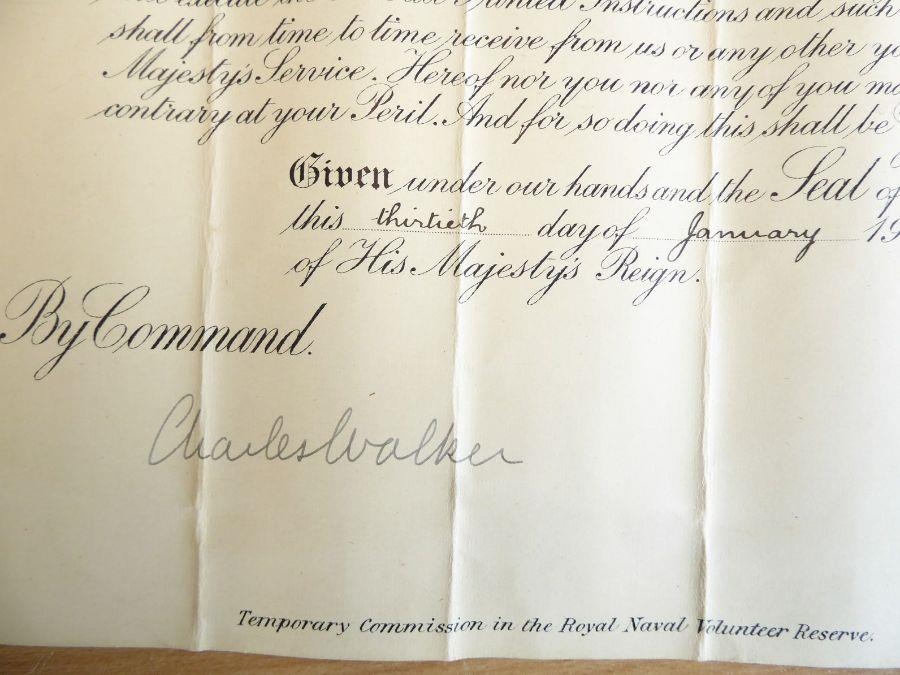 Printed Instructions and such
shall from time to time receive from us or any other
Majesty's Service. Hereof nor you nor any of you
contrary at your Peril. And for so doing this shall be
Given under our hands and the Seal of
this thirtieth day of January 19
of His Majesty's Reign.
By Command.
Charles Walker
Temporary Commission in the Royal Naval Volunteer Reserve.